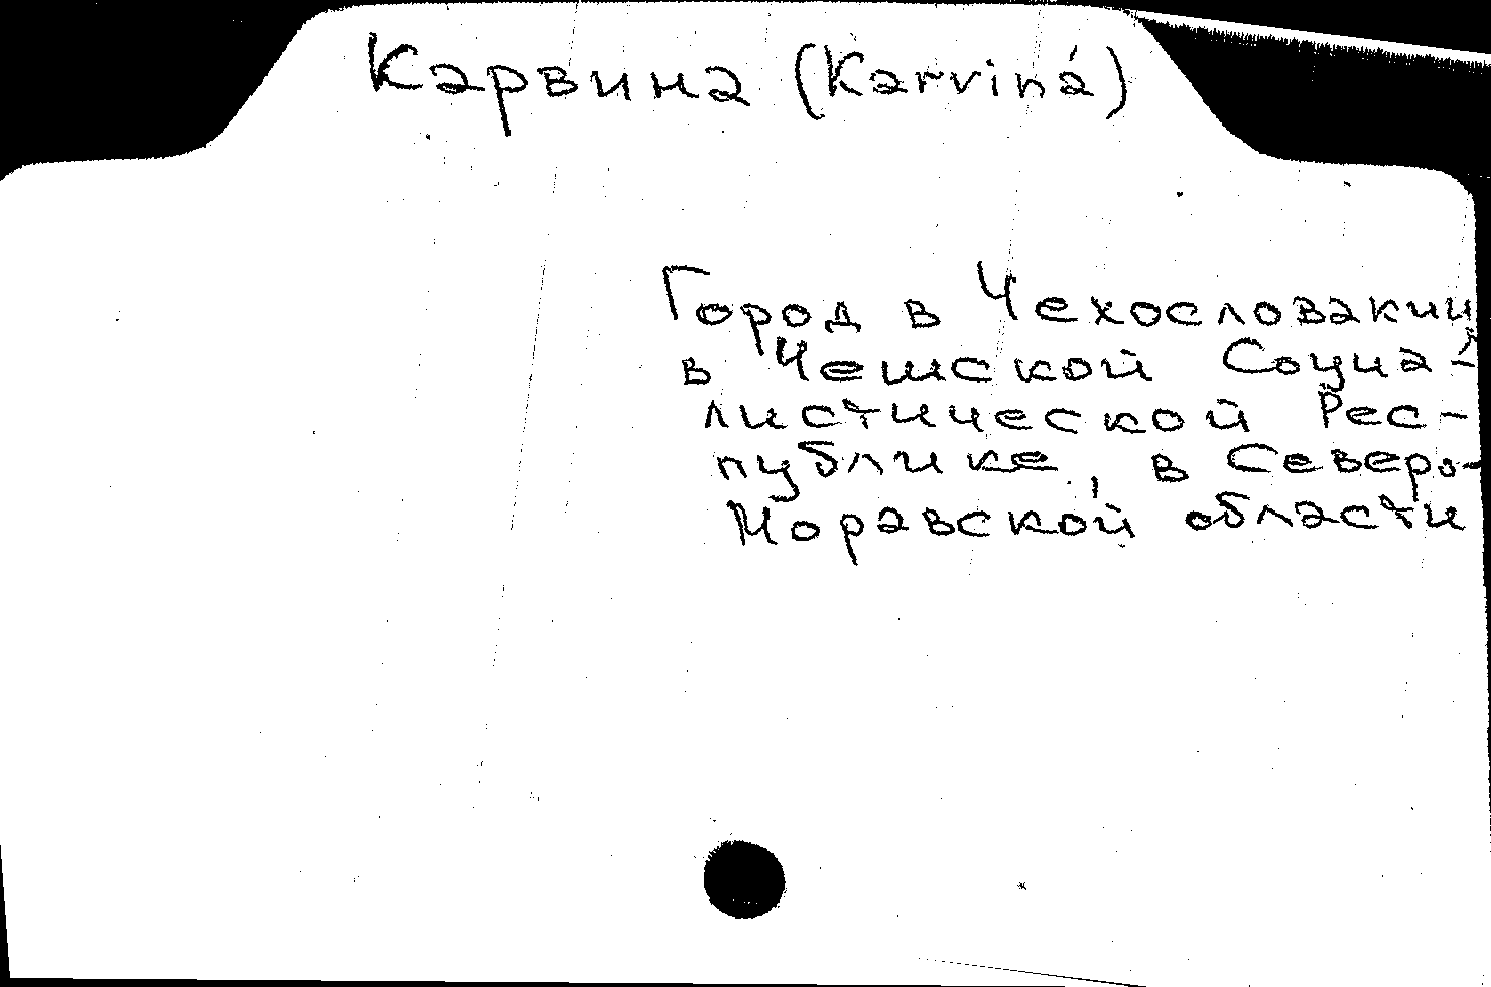 Карвина (Karviná)
Город в Чехословакии
в Чешской Социа-
листической Рес-
публике, в Северо-
Моравской области